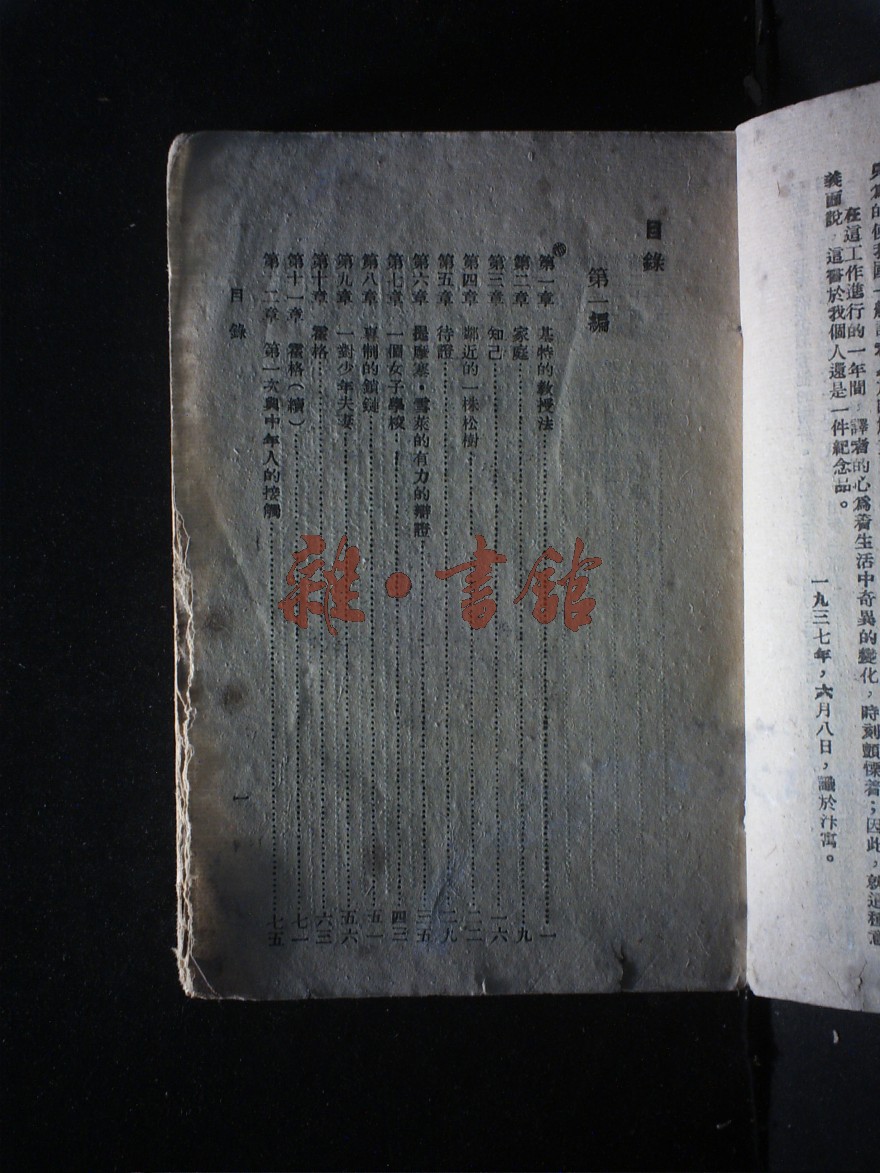 在這工作進行的一年間，譯者的心爲着生活中奇異的變化，時刻顫慄着；因此，就這種意
義面說，這書於我個人還是一件紀念品。
一九三七年，六月八日，識於汴寓。
目錄
第一編
第一章　基特的教授法……一
第二章　家庭……九
第三章　知己……一六
第四章　鄰近的一株松樹……二二
第五章　待證……二九
第六章　提摩塞·雪萊的有力的辯證……三五
第七章　一個女子學校……四三
第八章　專制的鎖鏈……五一
第九章　一對少年夫妻……五六
第十章　霍格……六三
第十一章　霍格（續）……七一
第十二章　第一次與中年人的接觸……七五
目錄
一
雜·書館